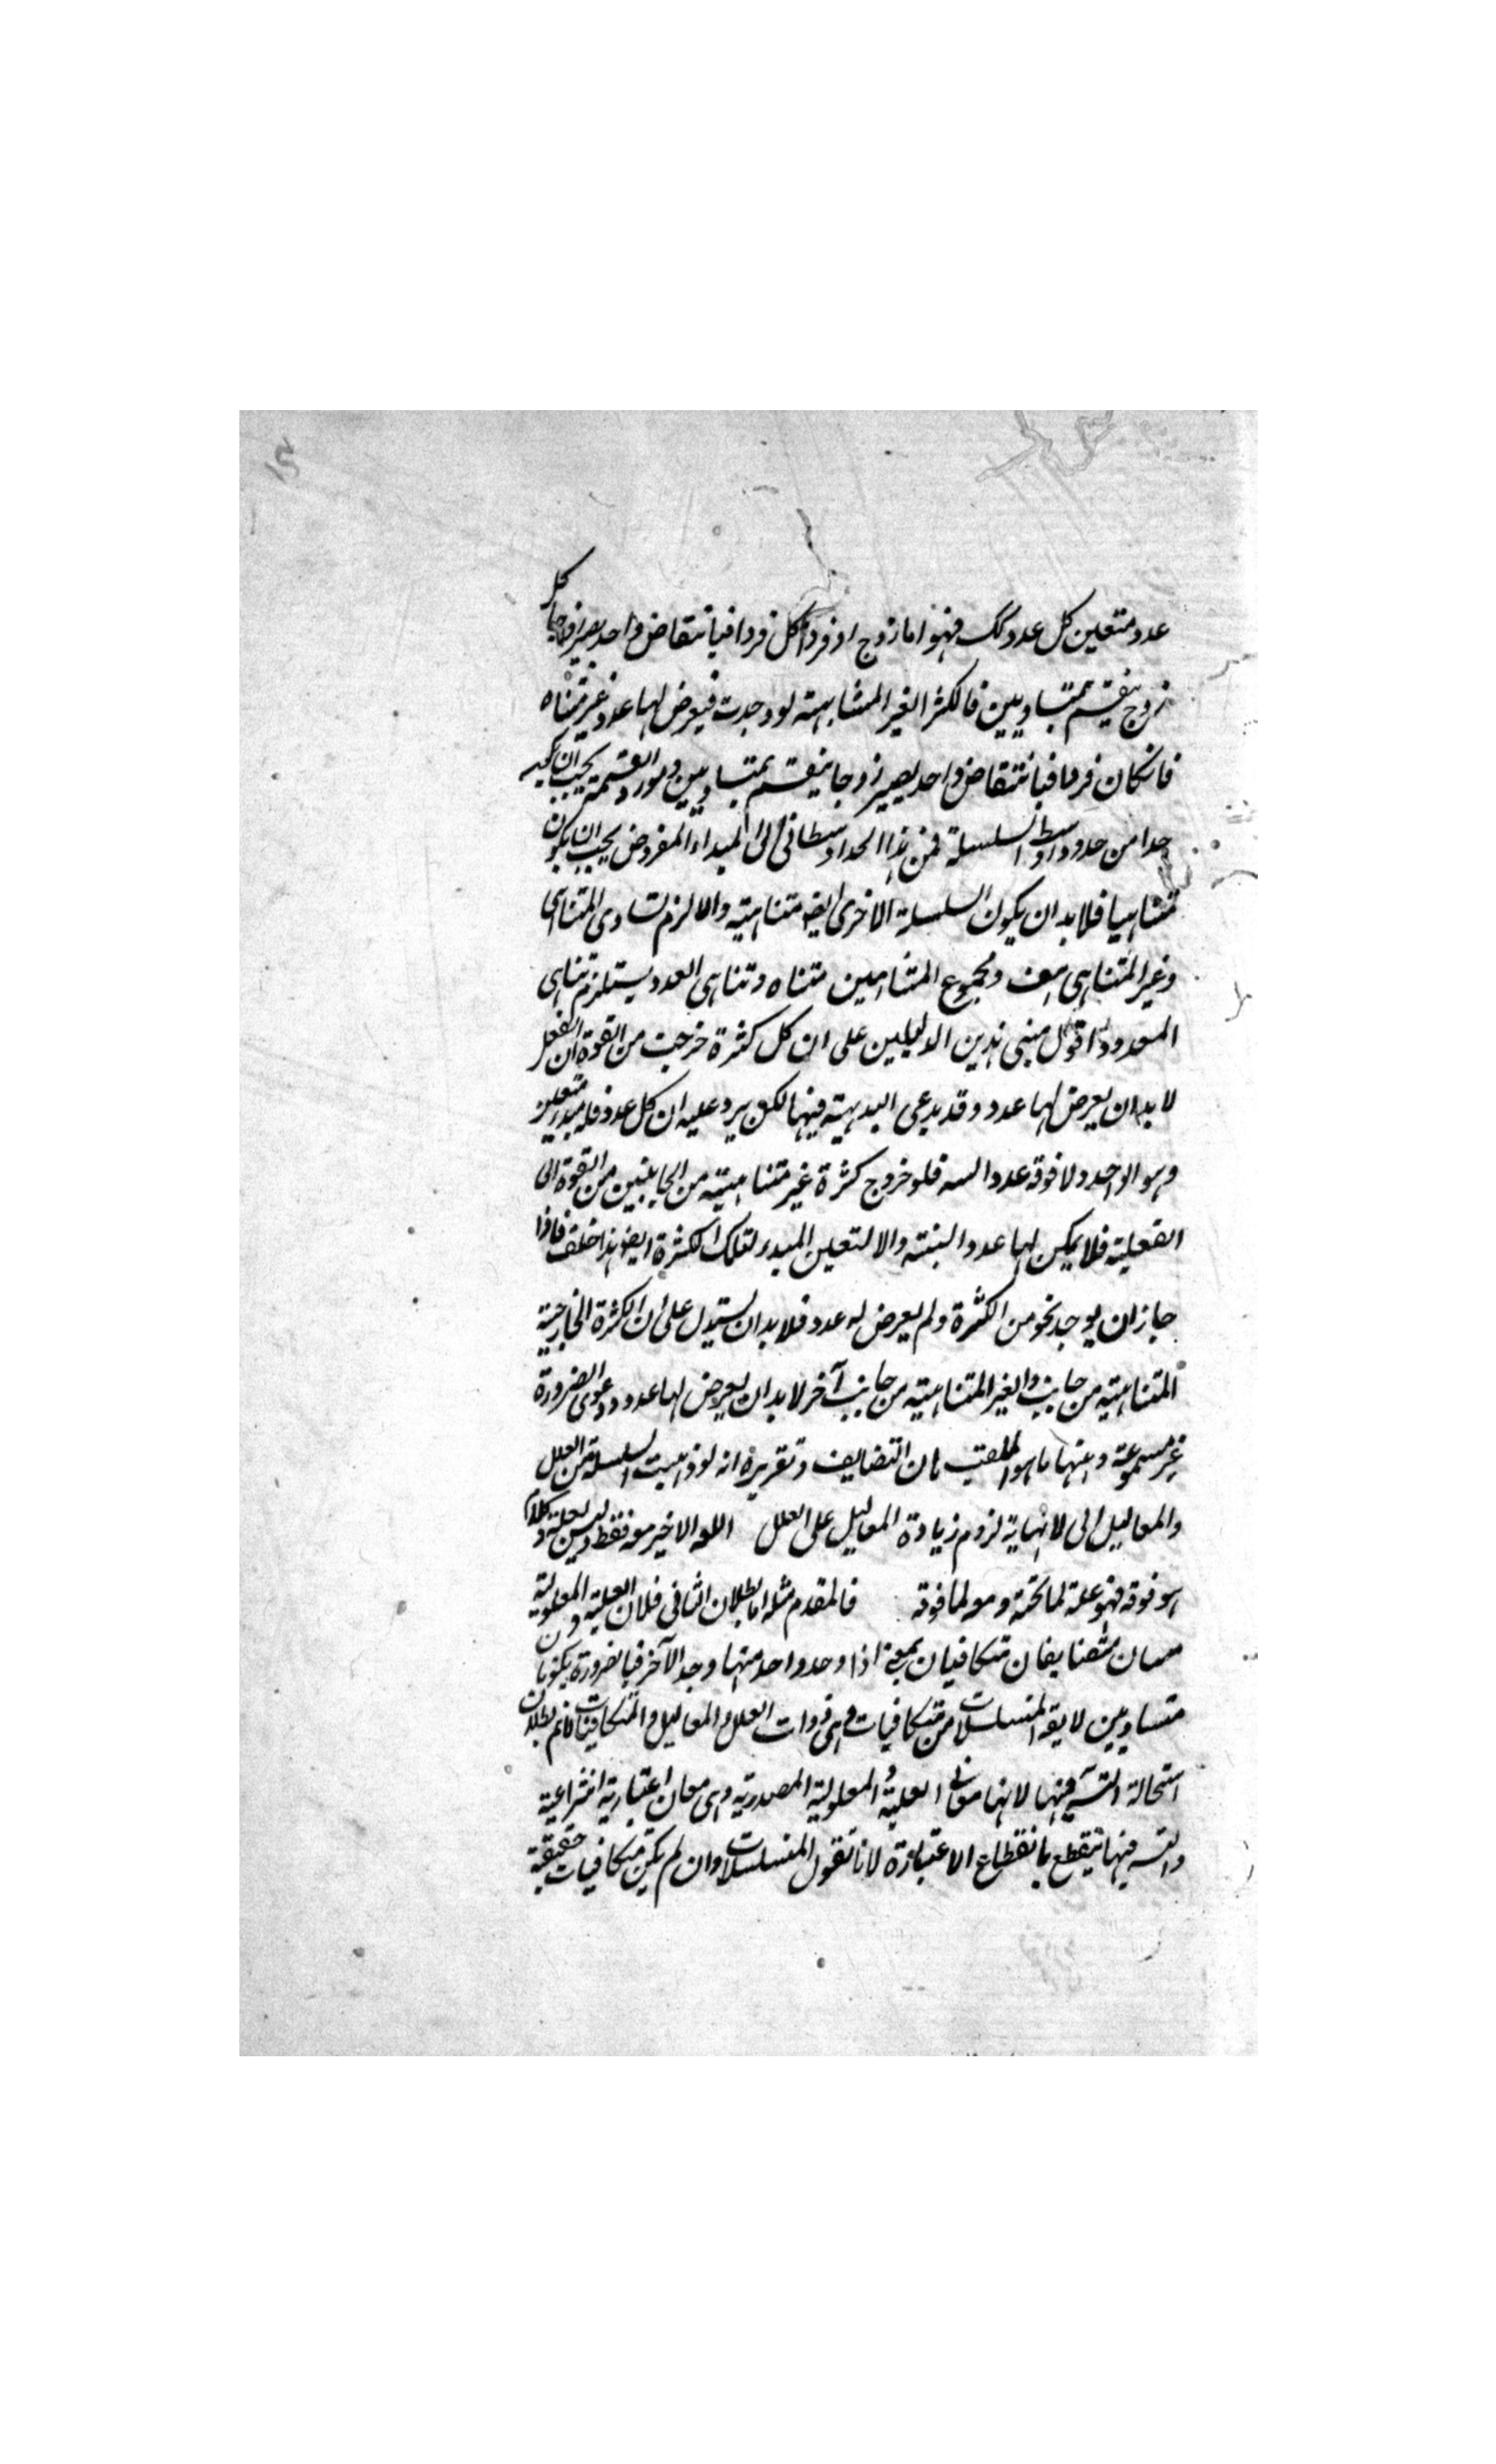 عدد متعين كل عدد كك فهو اما زوج او فرد كل فرد افبانتقاض واحد يصير زوجا كل
زوج ينقسم بمتساويين فالكثرة الغير المتناهية لو وجدت فيعرض لها عدد غير متناه
فانكان فردا فبانتقاض واحد يصير زوجا ينقسم بمتساويين ومورد القسمة يجب ان يكون
حدا من حدود اوساط السلسلة فمن هذا الحد الاوسطانى الى المبداء المفروض يجب ان يكون
متناهيا فلا بد ان يكون السلسلة الاخرى ايضا متناهية والا لزم تساوى المتناهى
وغير المتناهى هف ومجموع المتناهيين متناه وتناهى العدد يستلزم تناهى
المعدود اقول مبنى هذين الدليلين على ان كل كثرة خرجت من القوة الى الفعل
لا بد ان يعرض لها عدد وقد يدعى البديهة فيها لكن يرد عليه ان كل عدد فله مبدء متعين
وهو الواحد ولا فوقه عدد البتة فلو خروج كثرة غير متناهية من الجانبين من القوة الى
الفعلية فلا يمكن لها عدد البتة والا لتعين المبدء لتلك الكثرة ايضا هذا خلف فاذا
جاز ان يوجد نحو من الكثرة ولم يعرض له عدد فلا بد ان يستدل على ان الكثرة الخارجية
المتناهية من جانب والغير المتناهية من جانب آخر لا بد ان يعرض لها عدد ودعوى الضرورة
غير مسموعة ومنها ما هو الملقب بان التضايف وتقريره انه لو ذهبت السلسلة من العلل
والمعاليل الى لا نهاية لزوم زيادة المعاليل على العلل اللمه الاخير مع فقط وليس بعلة وكلما
هو فوقه فهو علة لما تحته ومع لما فوقه فالمقدم مثله اما بطلان الثانى فلان العلية والمعلولية
متضايفان متكافيان بمعنى اذا وجد واحد منهما وجد الآخر فبالضرورة يكونان
متساويين لا يقه المتسلسلات من متكافيات وهى ذوات العلل والمعاليل والمتكافيات لانم بطلان
استحالة التسه فيها لانها معانى العلية والمعلولية المصدرية وهى معان اعتبارية انتزاعية
والتسه فيها ينقطع بانقطاع الاعتبار لانا نقول المتسلسلات وان لم تكن متكافيات حقيقية